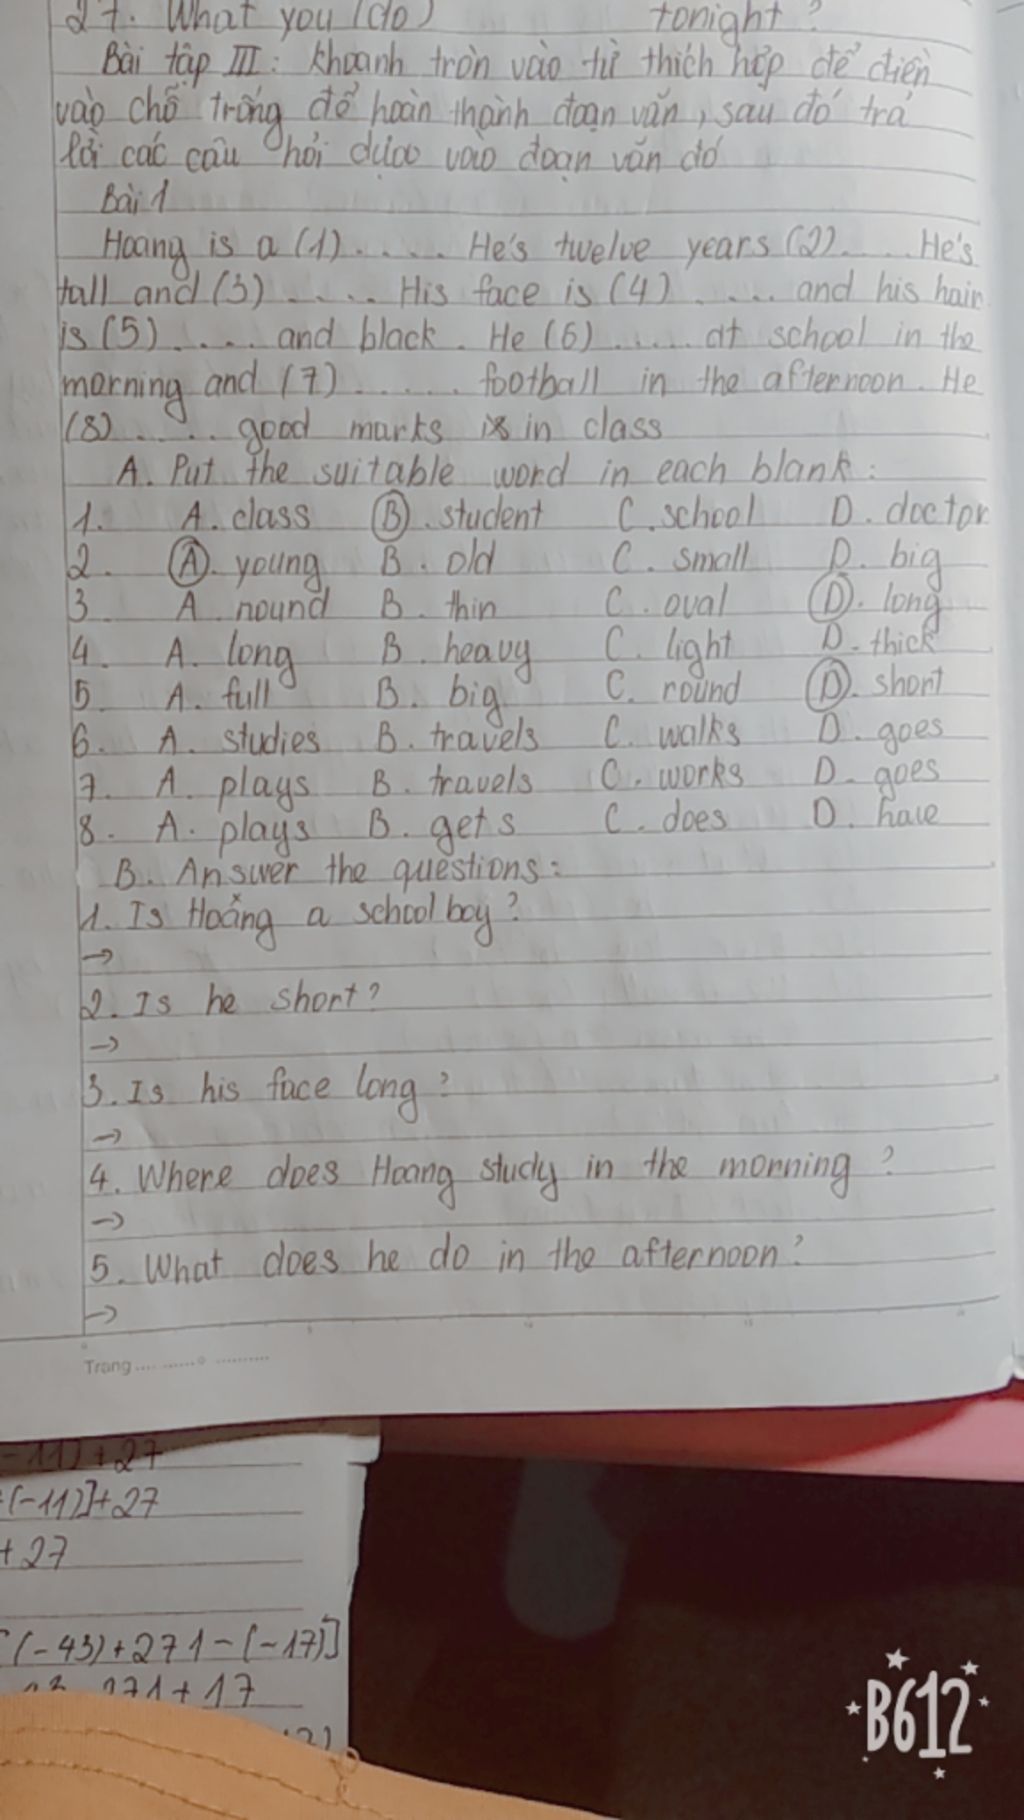 27. What you (do) tonight?
Bài tập III: Khoanh tròn vào từ thích hợp để điền
vào chỗ trống để hoàn thành đoạn văn, sau đó trả
lời các câu hỏi dựa vào đoạn văn đó
Bài 1
Hoang is a (1)..... He's twelve years (2).... He's
tall and (3)..... His face is (4)..... and his hair
is (5)..... and black. He (6)..... at school in the
morning and (7)...... football in the afternoon. He
(8)..... good marks in class
A. Put the suitable word in each blank:
1. A. class B. student C. school D. doctor
2. A. young B. old C. small D. big
3. A. nound B. thin C. oval D. long
4. A. long B. heavy C. light D. thick
5. A. full B. big C. round D. short
6. A. studies B. travels C. walks D. goes
7. A. plays B. travels C. works D. goes
8. A. plays B. gets C. does D. have
B. Answer the questions:
1. Is Hoang a schoolboy?
→
2. Is he short?
→
3. Is his face long?
→
4. Where does Hoang study in the morning?
→
5. What does he do in the afternoon?
→
Trang
-11)+27
+(-11)]+27
+27
[(-43)+271-(-17)]
271+17
B612